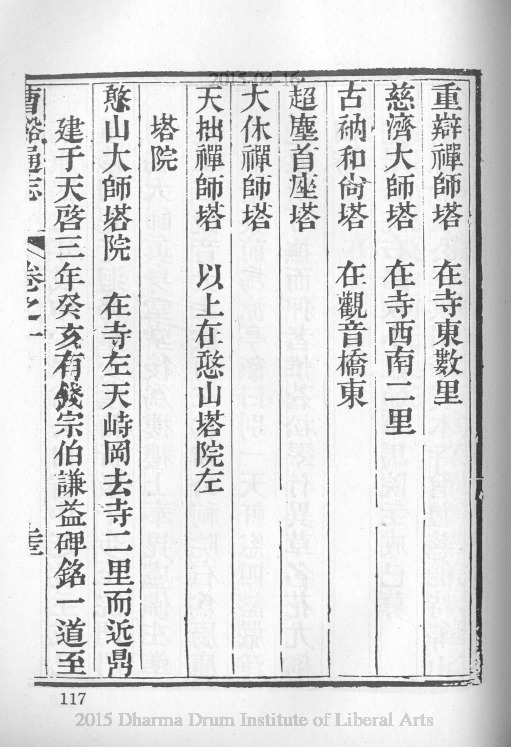 2015-04-16
重辯禪師塔　在寺東數里
慈濟大師塔　在寺西南二里
古衲和尙塔　在觀音橋東
超塵首座塔
大休禪師塔
天拙禪師塔　以上在憨山塔院左
塔院
憨山大師塔院　在寺左天峙岡去寺二里而近鼎
建于天啓三年癸亥有錢宗伯謙益碑銘一道至
曹谿通志　卷之一
117
2015 Dharma Drum Institute of Liberal Arts